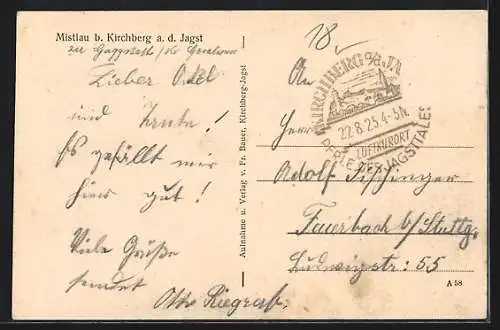 Mistlau b. Kirchberg a. d. Jagst
zu Gaggstatt / 
Lieber Onkel
und Tante!
Es gefällt mir
hier gut!
Viele Grüße
sendet
Otto
Aufnahme u. Verlag v. Fr. Bauer, Kirchberg-Jagst
18
An
KIRCHBERG a/JA
22.8.25.4-5N.
LUFTKURORT
PERLE DES JAGSTTALES
Herrn
Adolf
Feuerbach b/Stuttg.
Ludwigstr: 55
A 58